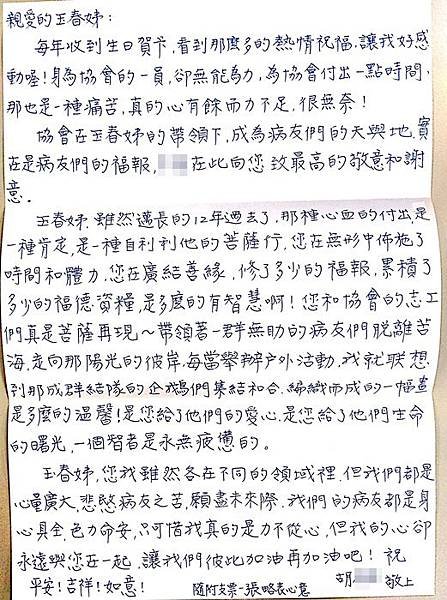 親愛的玉春姊：
每年收到生日賀卡，看到那麼多的熱情祝福，讓我好感
動喔！身為協會的一員，卻無能為力，為協會付出一點時間，
那也是一種痛苦，真的心有餘而力不足，很無奈！
協會在玉春姊的帶領下，成為病友們的天與地，實
在是病友們的福報，在此向您致最高的敬意和謝
意。
玉春姊，雖然漫長的12年過去了，那種心血的付出是
一種肯定，是一種自利利他的菩薩行，您在無形中佈施了
時間和體力，您在廣結善緣，修了多少的福報，累積了
多少的福德資糧，是多麼的有智慧啊！您和協會的志工
們真是菩薩再現～帶領著一群無助的病友們脫離苦
海，走向那陽光的彼岸，每當舉辦戶外活動，我就聯想
到那成群結隊的企鵝們集結和合，編織而成的一幅畫
是多麼的溫馨！是您給了他們的愛心，是您給了他們生命
的曙光，一個智者是永無疲憊的。
玉春姊，您我雖然各在不同的領域裡，但我們都是
心量廣大，悲愍病友之苦，願盡未來際，我們的病友都是身
心具全，色力命安，只可惜我真的是力不從心，但我的心卻
永遠與您在一起，讓我們彼此加油再加油吧！祝
平安！吉祥！如意！ 隨附支票一張略表心意 胡 敬上